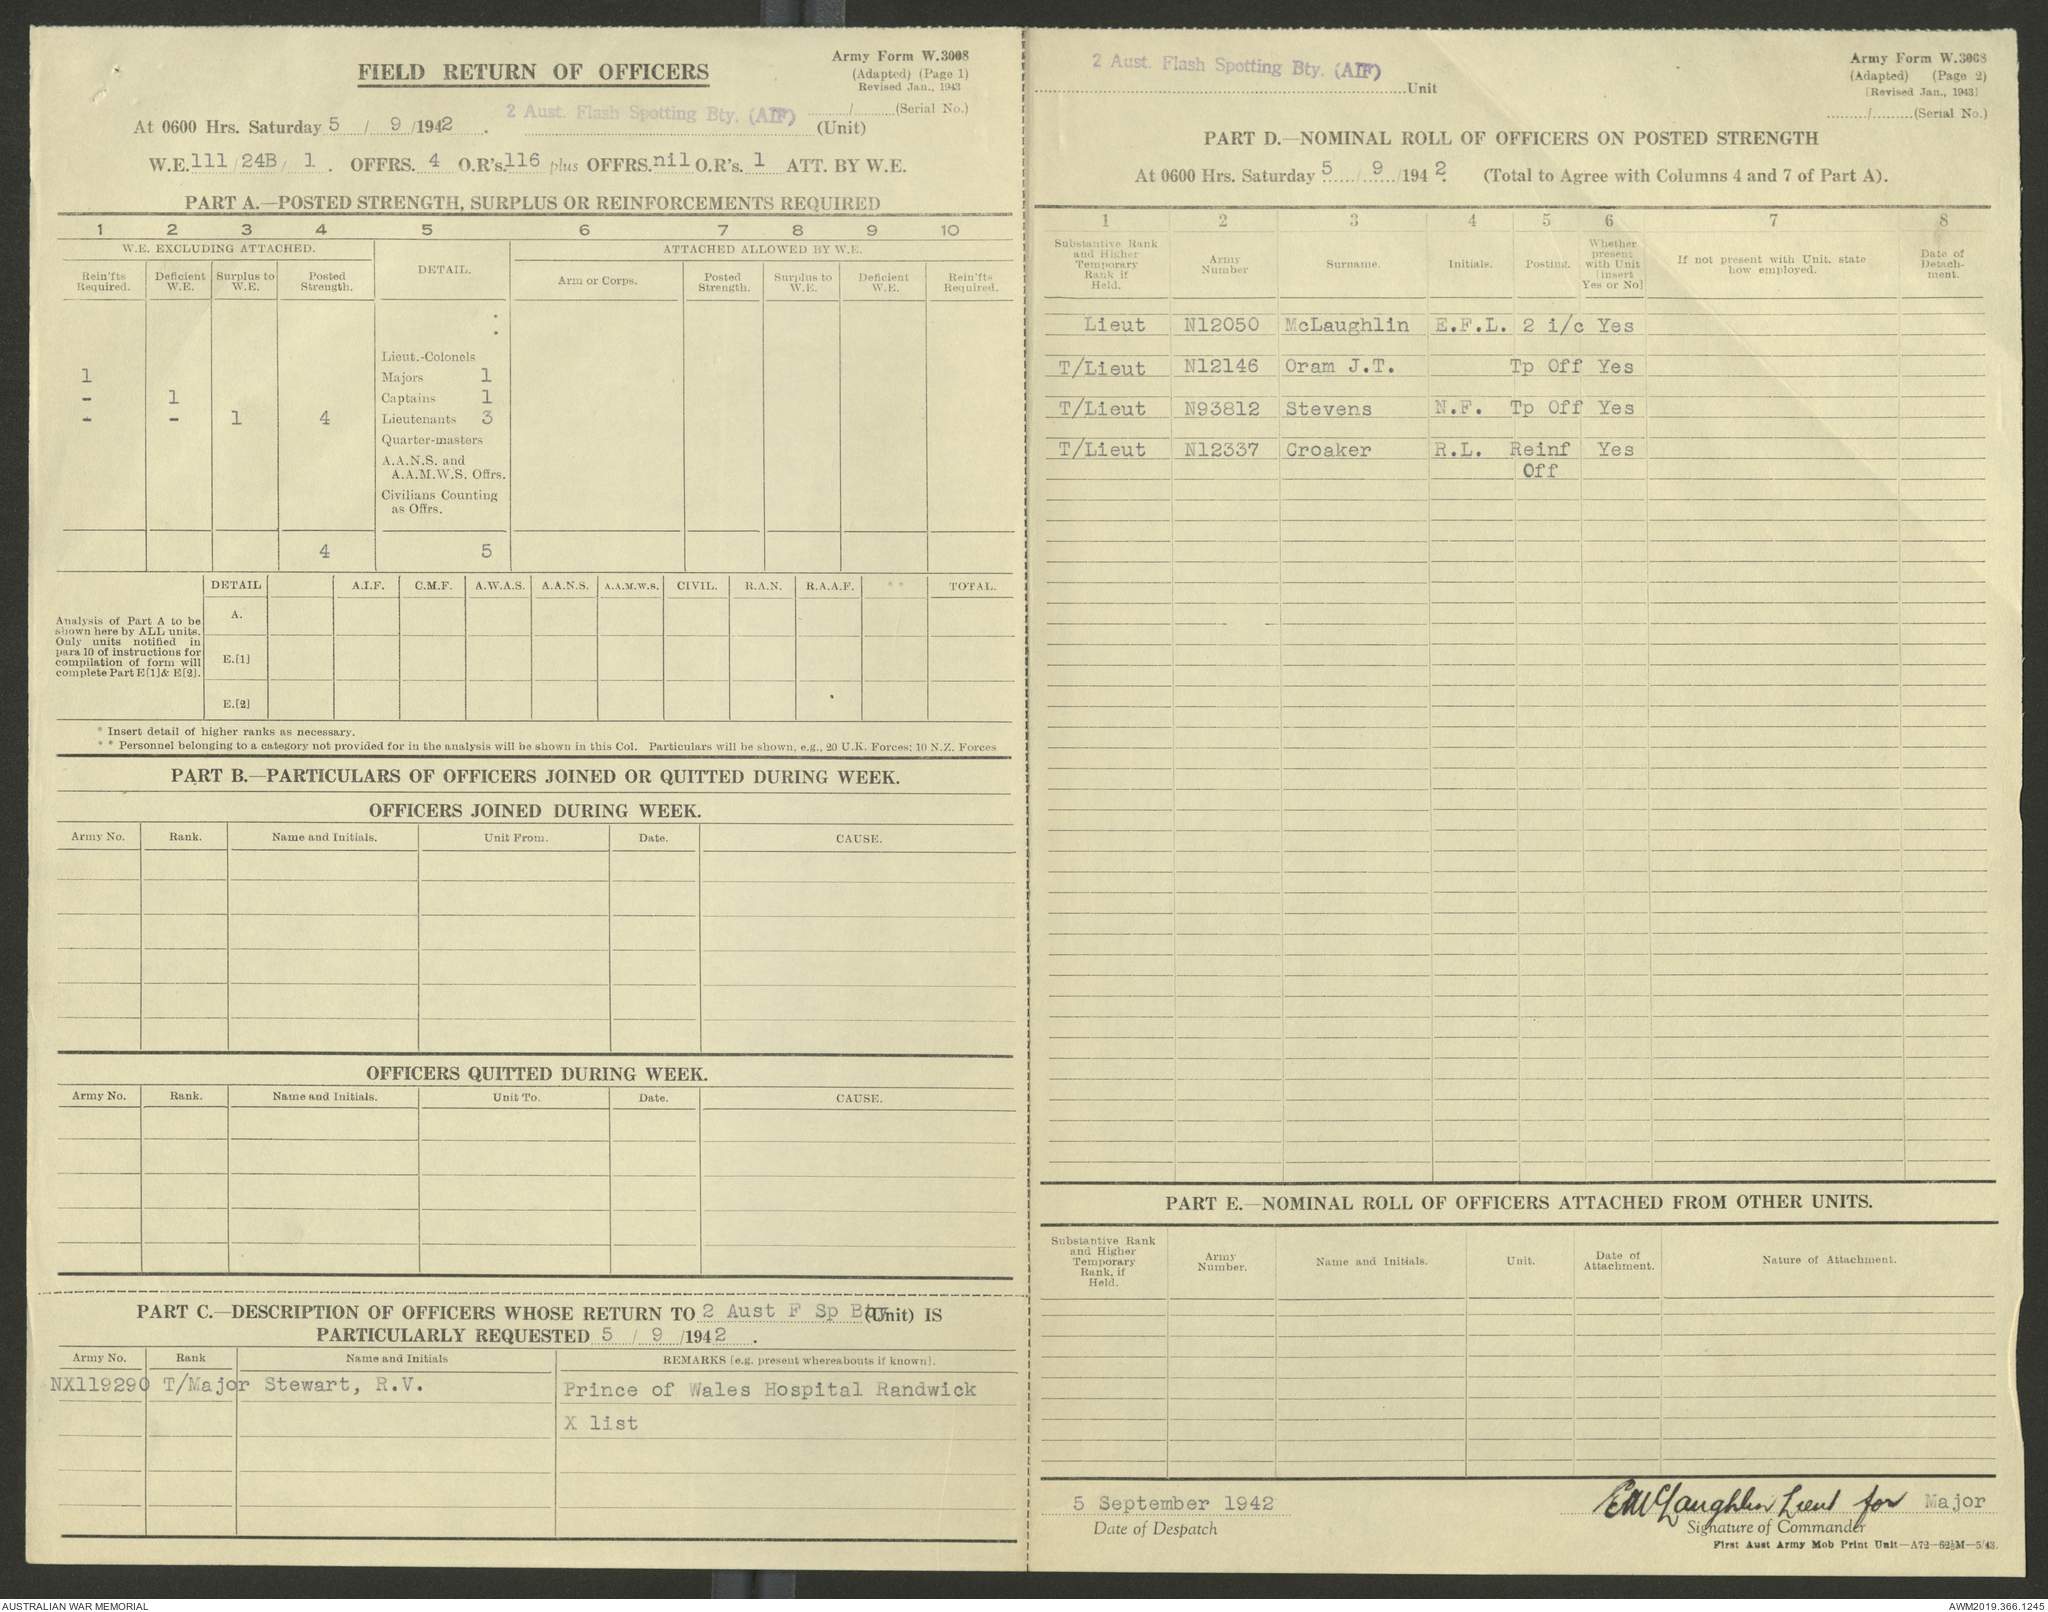 FIELD RETURN OF OFFICERS
Army Form W.3008
(Adapted) (Page 1)
Revised Jan., 1943
2 Aust. Flash Spotting Bty. (AIF) ........./.........(Serial No.)
At 0600 Hrs. Saturday 5 / 9 /1942 . (Unit)
W.E. 111 / 24B / 1 . OFFRS. 4 O.R's. 116 plus OFFRS. nil O.R's. 1 ATT. BY W.E.
PART A.—POSTED STRENGTH, SURPLUS OR REINFORCEMENTS REQUIRED
1 2 3 4 5 6 7 8 9 10
W.E. EXCLUDING ATTACHED. DETAIL. ATTACHED ALLOWED BY W.E.
Rein'fts Required. Deficient W.E. Surplus to W.E. Posted Strength. Arm or Corps. Posted Strength. Surplus to W.E. Deficient W.E. Rein'fts Required.
*
*
Lieut.-Colonels
1 Majors 1
- 1 Captains 1
- - 1 4 Lieutenants 3
Quarter-masters
A.A.N.S. and
A.A.M.W.S. Offrs.
Civilians Counting
as Offrs.
4 5
DETAIL A.I.F. C.M.F. A.W.A.S. A.A.N.S. A.A.M.W.S. CIVIL. R.A.N. R.A.A.F. * * TOTAL.
Analysis of Part A to be
shown here by ALL units.
Only units notified in
para 10 of instructions for
compilation of form will
complete Part E[1] & E[2].
A.
E.[1]
E.[2]
* Insert detail of higher ranks as necessary.
* * Personnel belonging to a category not provided for in the analysis will be shown in this Col. Particulars will be shown, e.g., 20 U.K. Forces; 10 N.Z. Forces
PART B.—PARTICULARS OF OFFICERS JOINED OR QUITTED DURING WEEK.
OFFICERS JOINED DURING WEEK.
Army No. Rank. Name and Initials. Unit From. Date. CAUSE.
OFFICERS QUITTED DURING WEEK.
Army No. Rank. Name and Initials. Unit To. Date. CAUSE.
PART C.—DESCRIPTION OF OFFICERS WHOSE RETURN TO 2 Aust F Sp Bty (Unit) IS
PARTICULARLY REQUESTED 5 / 9 /1942 .
Army No. Rank Name and Initials REMARKS [e.g. present whereabouts if known].
NX119290 T/Major Stewart, R.V. Prince of Wales Hospital Randwick
X list
2 Aust. Flash Spotting Bty. (AIF)
Unit
Army Form W.3008
(Adapted) (Page 2)
[Revised Jan., 1943]
........./.........(Serial No.)
PART D.—NOMINAL ROLL OF OFFICERS ON POSTED STRENGTH
At 0600 Hrs. Saturday 5 / 9 /1942. (Total to Agree with Columns 4 and 7 of Part A).
1 2 3 4 5 6 7 8
Substantive Rank and Higher Temporary Rank if Held. Army Number Surname. Initials. Posting. Whether present with Unit [insert Yes or No] If not present with Unit, state how employed. Date of Detach-ment.
Lieut N12050 McLaughlin E.F.L. 2 i/c Yes
T/Lieut N12146 Oram J.T. Tp Off Yes
T/Lieut N93812 Stevens N.F. Tp Off Yes
T/Lieut N12337 Croaker R.L. Reinf Yes
Off
PART E.—NOMINAL ROLL OF OFFICERS ATTACHED FROM OTHER UNITS.
Substantive Rank and Higher Temporary Rank, if Held. Army Number. Name and Initials. Unit. Date of Attachment. Nature of Attachment.
5 September 1942
Date of Despatch
EMcLaughlin Lieut for Major
Signature of Commander
First Aust Army Mob Print Unit—A72—62½M—5/43.
AUSTRALIAN WAR MEMORIAL
AWM2019.366.1245